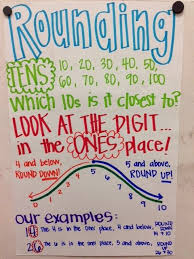 Rounding
TENS 10, 20, 30, 40, 50,
60, 70, 80, 90, 100
Which 10s is it closest to?
LOOK AT THE DIGIT...
in the ONES place!
4 and below,
ROUND DOWN!
5 and above,
ROUND UP!
0 1 2 3 4 5 6 7 8 9 10
our examples:
14 The 4 is in the ones place, 4 and below, ROUND DOWN
14 → 10
26 The 6 is in the ones place, 5 and above, ROUND UP
26 → 30